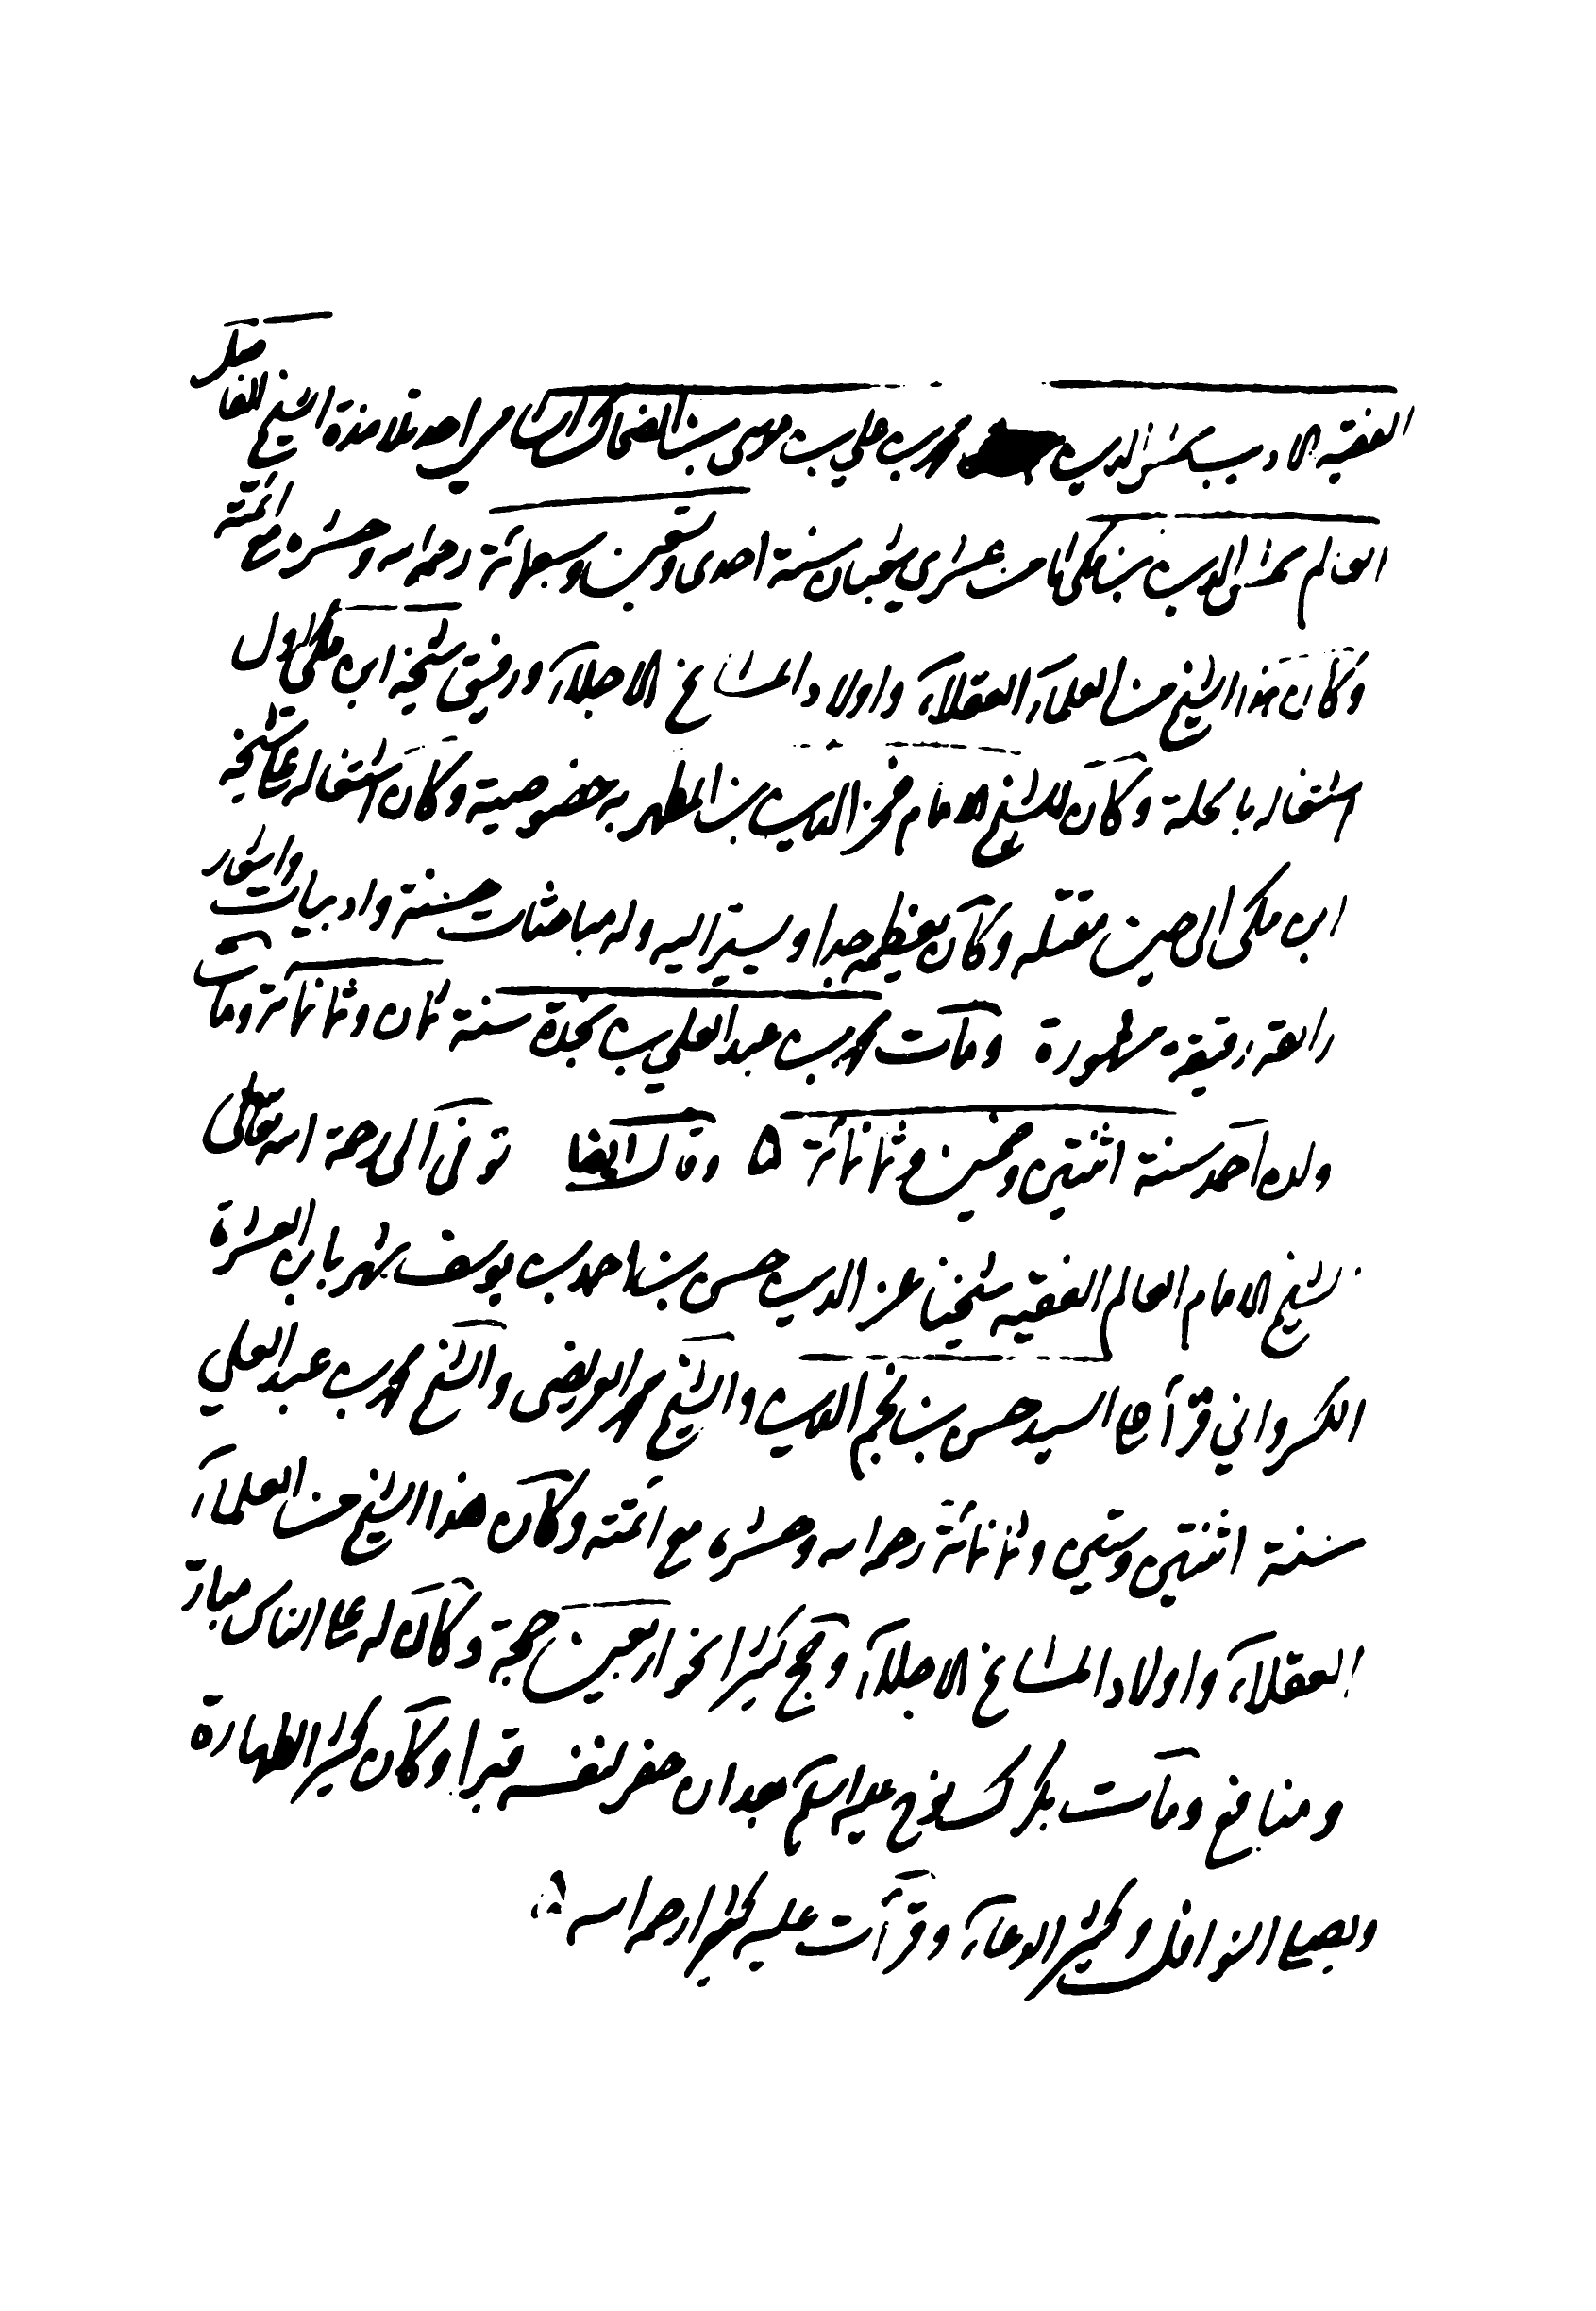 الفقيه الاديب شمس الدين محمد بن علي بن موسى بن الضحاك الشامي احد تلامذة الشيخ الفاضل
العالم شمس الدين بن مكي ثامن عشري شعبان سنة احدى وتسعين وسبعمائة رحمه الله وحشره مع ائمته
وكان هذا الشيخ من العلماء العقلاء واولاد المشايخ الاجلاء ورفيق شيخه ابن مكي اول
اشتغاله بالحلة وكان للشيخ الامام فخر الدين بن المطهر به خصوصية وكان اشتغاله على شيخه
ابن مكي الى حين مقتله وكان يعظمه جدا ويشير اليه وله مباحثات حسنة وادبيات واشعار
رائقة رقيقة مشهورة ومات محمد بن عبد العلي بن نجدة سنة ثمان وثمانمائة ومات
ولده احمد سنة اثنتين وخمسين وثمانمائة ۵ وقال ايضا توفى الى رحمة الله تعالى
الشيخ الامام العالم الفقيه شيخنا عز الدين حسن بن احمد بن يوسف شهر بابن العشرة
الكسرواني قرأ على السيد حسن بن نجم الدين والشيخ محمد العريضي والشيخ محمد بن عبد العلي
سنة اثنتين وستين وثمانمائة رحمه الله وحشره مع ائمته وكان هذا الشيخ من العلماء
العقلاء واولاد المشايخ الاجلاء وحج كثيرا نحو اربعين حجة وكان له على الناس مبارّ
ومنافع ومات بكرك نوح عليه السلم بعد ان حفر لنفسه قبرا وكان كثير الطهارة
ويصلي النوافل وكثير الدعاء وقرأت عليه كثيرا رحمه الله